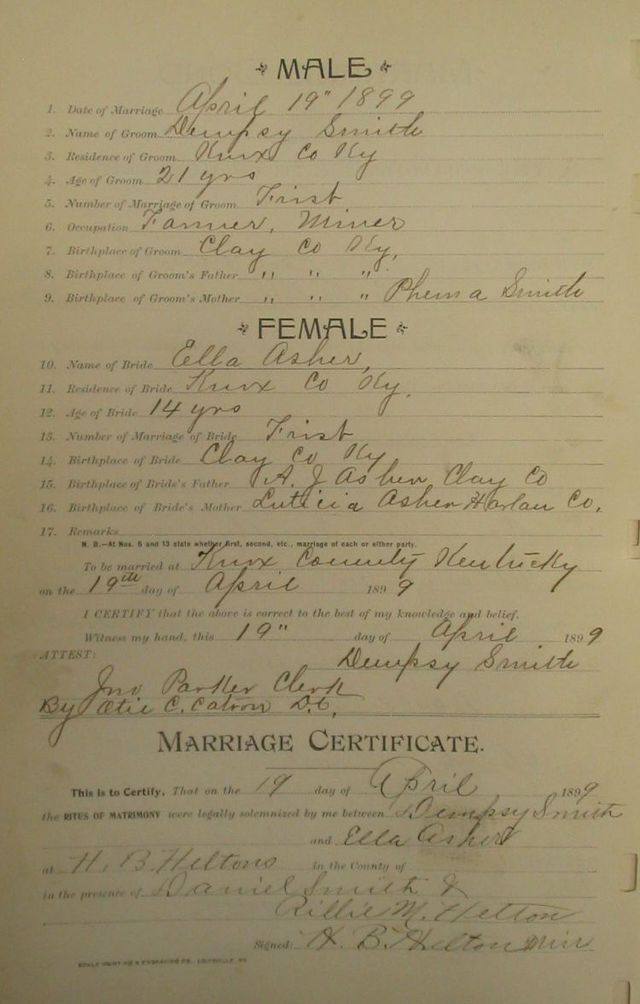 MALE
1. Date of Marriage April 19" 1899
2. Name of Groom Dempsy Smith
3. Residence of Groom Knox Co Ky
4. Age of Groom 21 yrs
5. Number of Marriage of Groom First
6. Occupation Farmer, Miner
7. Birthplace of Groom Clay Co Ky,
8. Birthplace of Groom's Father " " "
9. Birthplace of Groom's Mother " " " Phema Smith
FEMALE
10. Name of Bride Ella Asher,
11. Residence of Bride Knox Co Ky.
12. Age of Bride 14 yrs
13. Number of Marriage of Bride First
14. Birthplace of Bride Clay Co Ky
15. Birthplace of Bride's Father A. J Asher Clay Co
16. Birthplace of Bride's Mother Luticia Asher Harlan Co.
17. Remarks
N. B.—At Nos. 5 and 13 state whether first, second, etc., marriage of each or either party.
To be married at Knox County Kentucky
on the 19th day of April 1899
I CERTIFY that the above is correct to the best of my knowledge and belief.
Witness my hand, this 19" day of April 1899
ATTEST: Dempsy Smith
Jno Parker Clerk
By C. Catron D.C.
MARRIAGE CERTIFICATE.
This is to Certify, That on the 19 day of April 1899
the RITES OF MATRIMONY were legally solemnized by me between Dempsy Smith
and Ella Asher
at H. B. Heltons in the County of
in the presence of Daniel Smith &
Rillie M. Helton
Signed: H. B. Helton Min